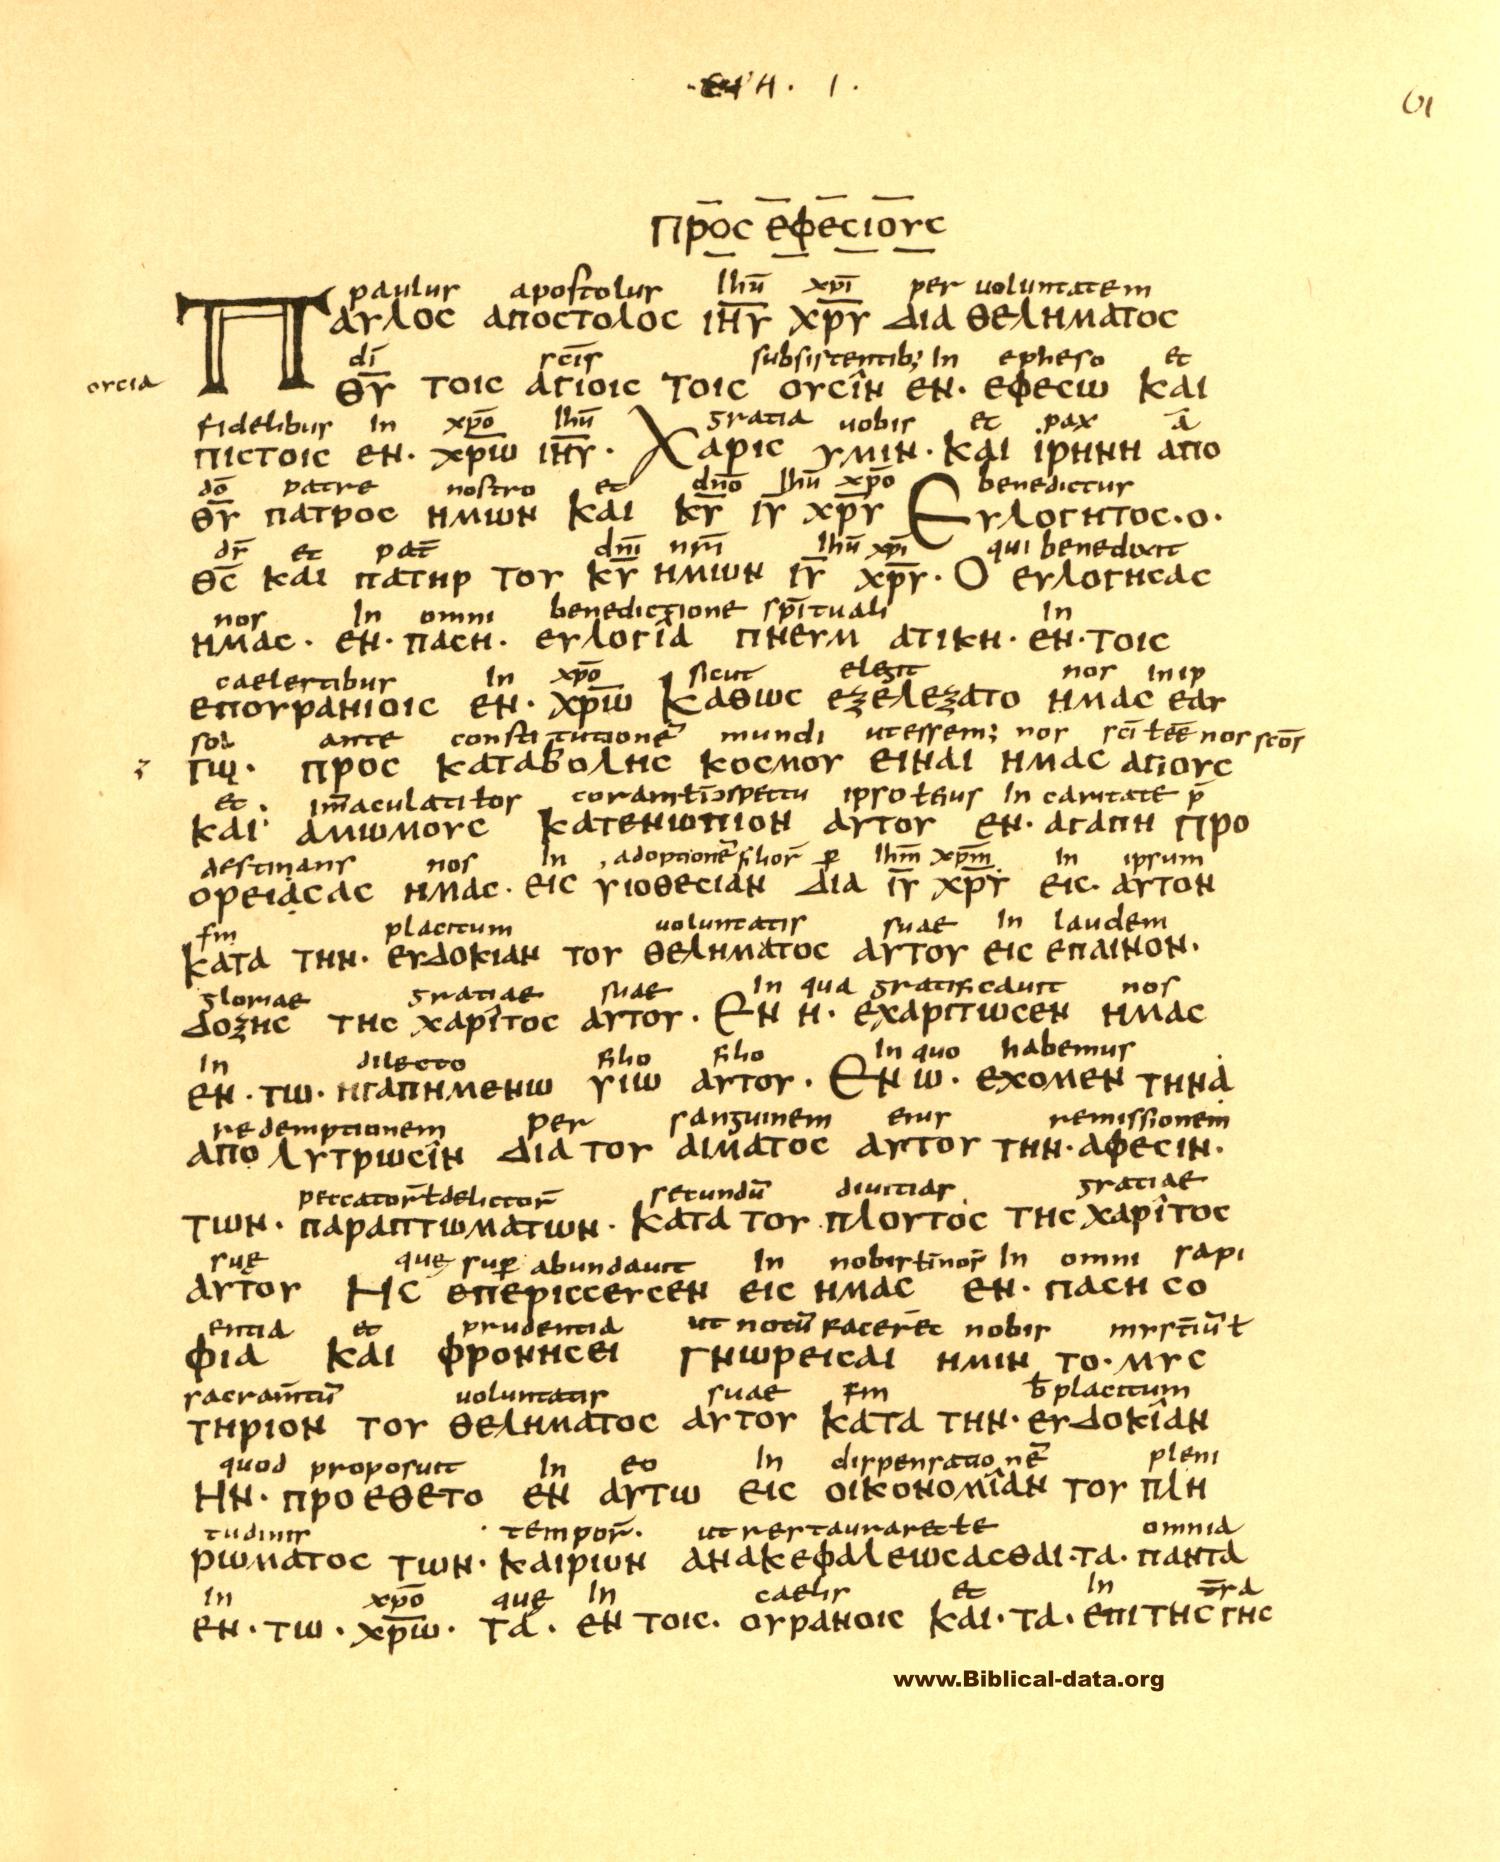 61
προс εφεсιογс
paulus apostolus ihū xpī per uoluntatem
Παγλοс αποсτολοс ιηγ χργ δια θεληματοс
dī sc̄is subsistentib; In epheso et
orcia
θγ τοιс αγιοιс τοιс ογсιν εν· εφεсω και
fidelibus In xpō ihū gratia uobis et pax ā
πιсτοιс εν· χρω ιηγ· Χαριс γμιν· και ιρηνη απο
dō patre nostro et dnō ihū xpō benedictus
θγ πατροс ημων και κγ ιγ χργ Εγλογητοс·ο·
ds̄ et pat̄ dnī nrī ihū xpī qui benedixit
θс και πατηρ τογ κγ ημων ιγ χργ· Ο εγλογηсαс
nos In omni benedictione sp̄irituali In
ημαс· εν· παсη· εγλογια πνεγματικη· εν·τοιс
caelestibus In xpō sicut elegit nos in ip
επογρανιοιс εν· χρω Καθωс εξελεξατο ημαс εαγ
so ante constitutionē mundi ut essem; nos sc̄i ł eē nos sc̄os
τω· προс καταβοληс κοсμογ ειναι ημαс αγιογс
et · im̄aculati łos coram ł īɔspectu ipso ł eius In caritate p̄
και αμωμογс κατενωπιον αγτογ εν· αγαπη προ
destinans nos In adoptionē filioꝝ ꝑ ihm̄ xpm̄ In ipsum
ορειαсαс ημαс· ειс γιοθεсιαν δια ιγ χργ ειс· αγτον
placitum uoluntatis suae In laudem
κατα την· εγδοκιαν τογ θεληματοс αγτογ ειс επαινον·
gloriae gratiae suae In qua gratificauit nos
δοξηс τηс χαριτοс αγτογ· Εν η· εχαριτωсεν ημαс
In dilecto filio filio In quo habemus
εν·τω· ηγαπημενω γιω αγτογ· Εν ω· εχομεν την α
redemptionem per sanguinem eius remissionem
απολγτρωсιν δια τογ αιματοс αγτογ την·αφεсιν·
peccatoꝝ ł delictoꝝ secundū diuitias gratiae
των· παραπτωματων· κατα τογ πλογτοс τηс χαριτοс
suę quę suꝑ abundauit In nobis ł īnos̄ In omni sapi
αγτογ Ηс επεριссεγсεν ειс ημαс εν· παсη сο
entia et prudentia ut notū facer&#275;t nobis myst̄iū ł
φια και φρονηсει γνωρειсαι ημιν το·μγс
sacram̄tū uoluntatis suae placitum
τηριον τογ θεληματοс αγτογ κατα την·εγδοκιαν
quod proposuit In eo In dispensationē pleni
Ην· προεθετο εν αγτω ειс οικονομιαν τογ πλη
tudinis tempoꝝ· ut restauraret ł e omnia
ρωματοс των· καιρων ανακεφαλεωсαсθαι·τα· παντα
In xpō quę In caelis et In t̄ra
εν·τω· χρω· τα· εν τοιс· ογρανοιс και·τα· επι τηс γηс
www.Biblical-data.org